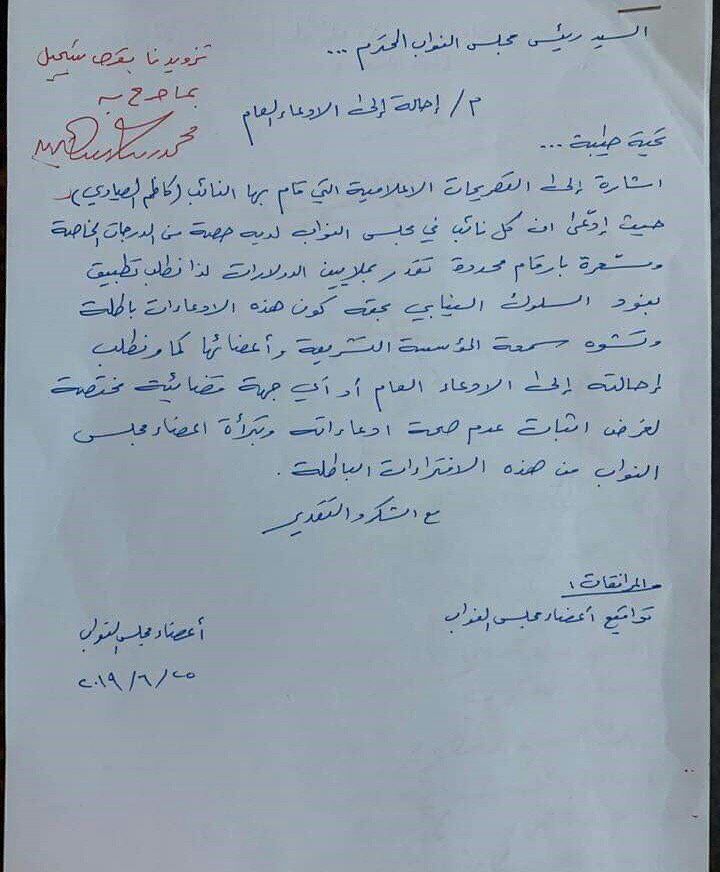 السيد رئيس مجلس النواب المحترم ...
تزويدنا بقرص تسجيل
بما صرح به
م/ إحالة إلى الادعاء العام
تحية طيبة ...
اشارة إلى التصريحات الاعلامية التي قام بها النائب (كاظم الصيادي)
حيث إدّعى ان كل نائب في مجلس النواب لديه حصة من الدرجات الخاصة
ومسعرة بارقام محددة تقدر بملايين الدولارات لذا نطلب تطبيق
بنود السلوك النيابي بحقه كون هذه الادعاءات باطلة
وتشوه سمعة المؤسسة التشريعية وأعضائها كما ونطلب
إحالته إلى الادعاء العام أو أي جهة قضائية مختصة
لغرض اثبات عدم صحة ادعاءاته وتبرأة اعضاء مجلس
النواب من هذه الافتراءات الباطلة .
مع الشكر والتقدير
المرافقات :
تواقيع أعضاء مجلس النواب
أعضاء مجلس النواب
٢٠١٩/٦/٢٥